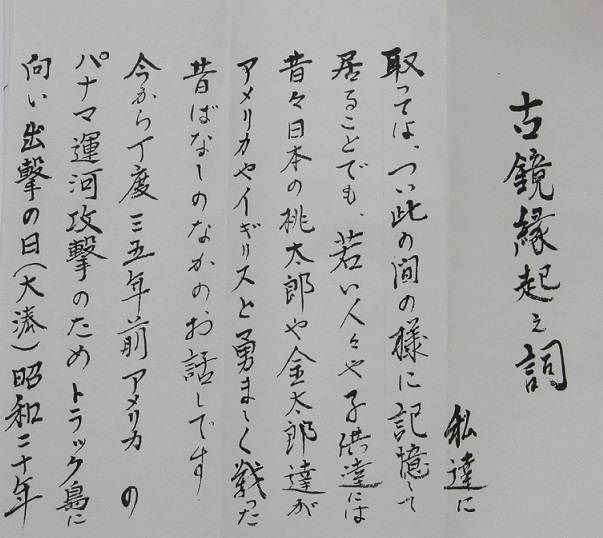 古鏡縁起之詞
私達に
取っては、つい此の間の様に記憶して
居ることでも、若い人々や子供達には
昔々日本の桃太郎や金太郎達が
アメリカやイギリスと勇ましく戦った
昔ばなしのなかのお話しです
今から丁度三五年前アメリカの
パナマ運河攻撃のためトラック島に
向い出撃の日(大湊)昭和二十年